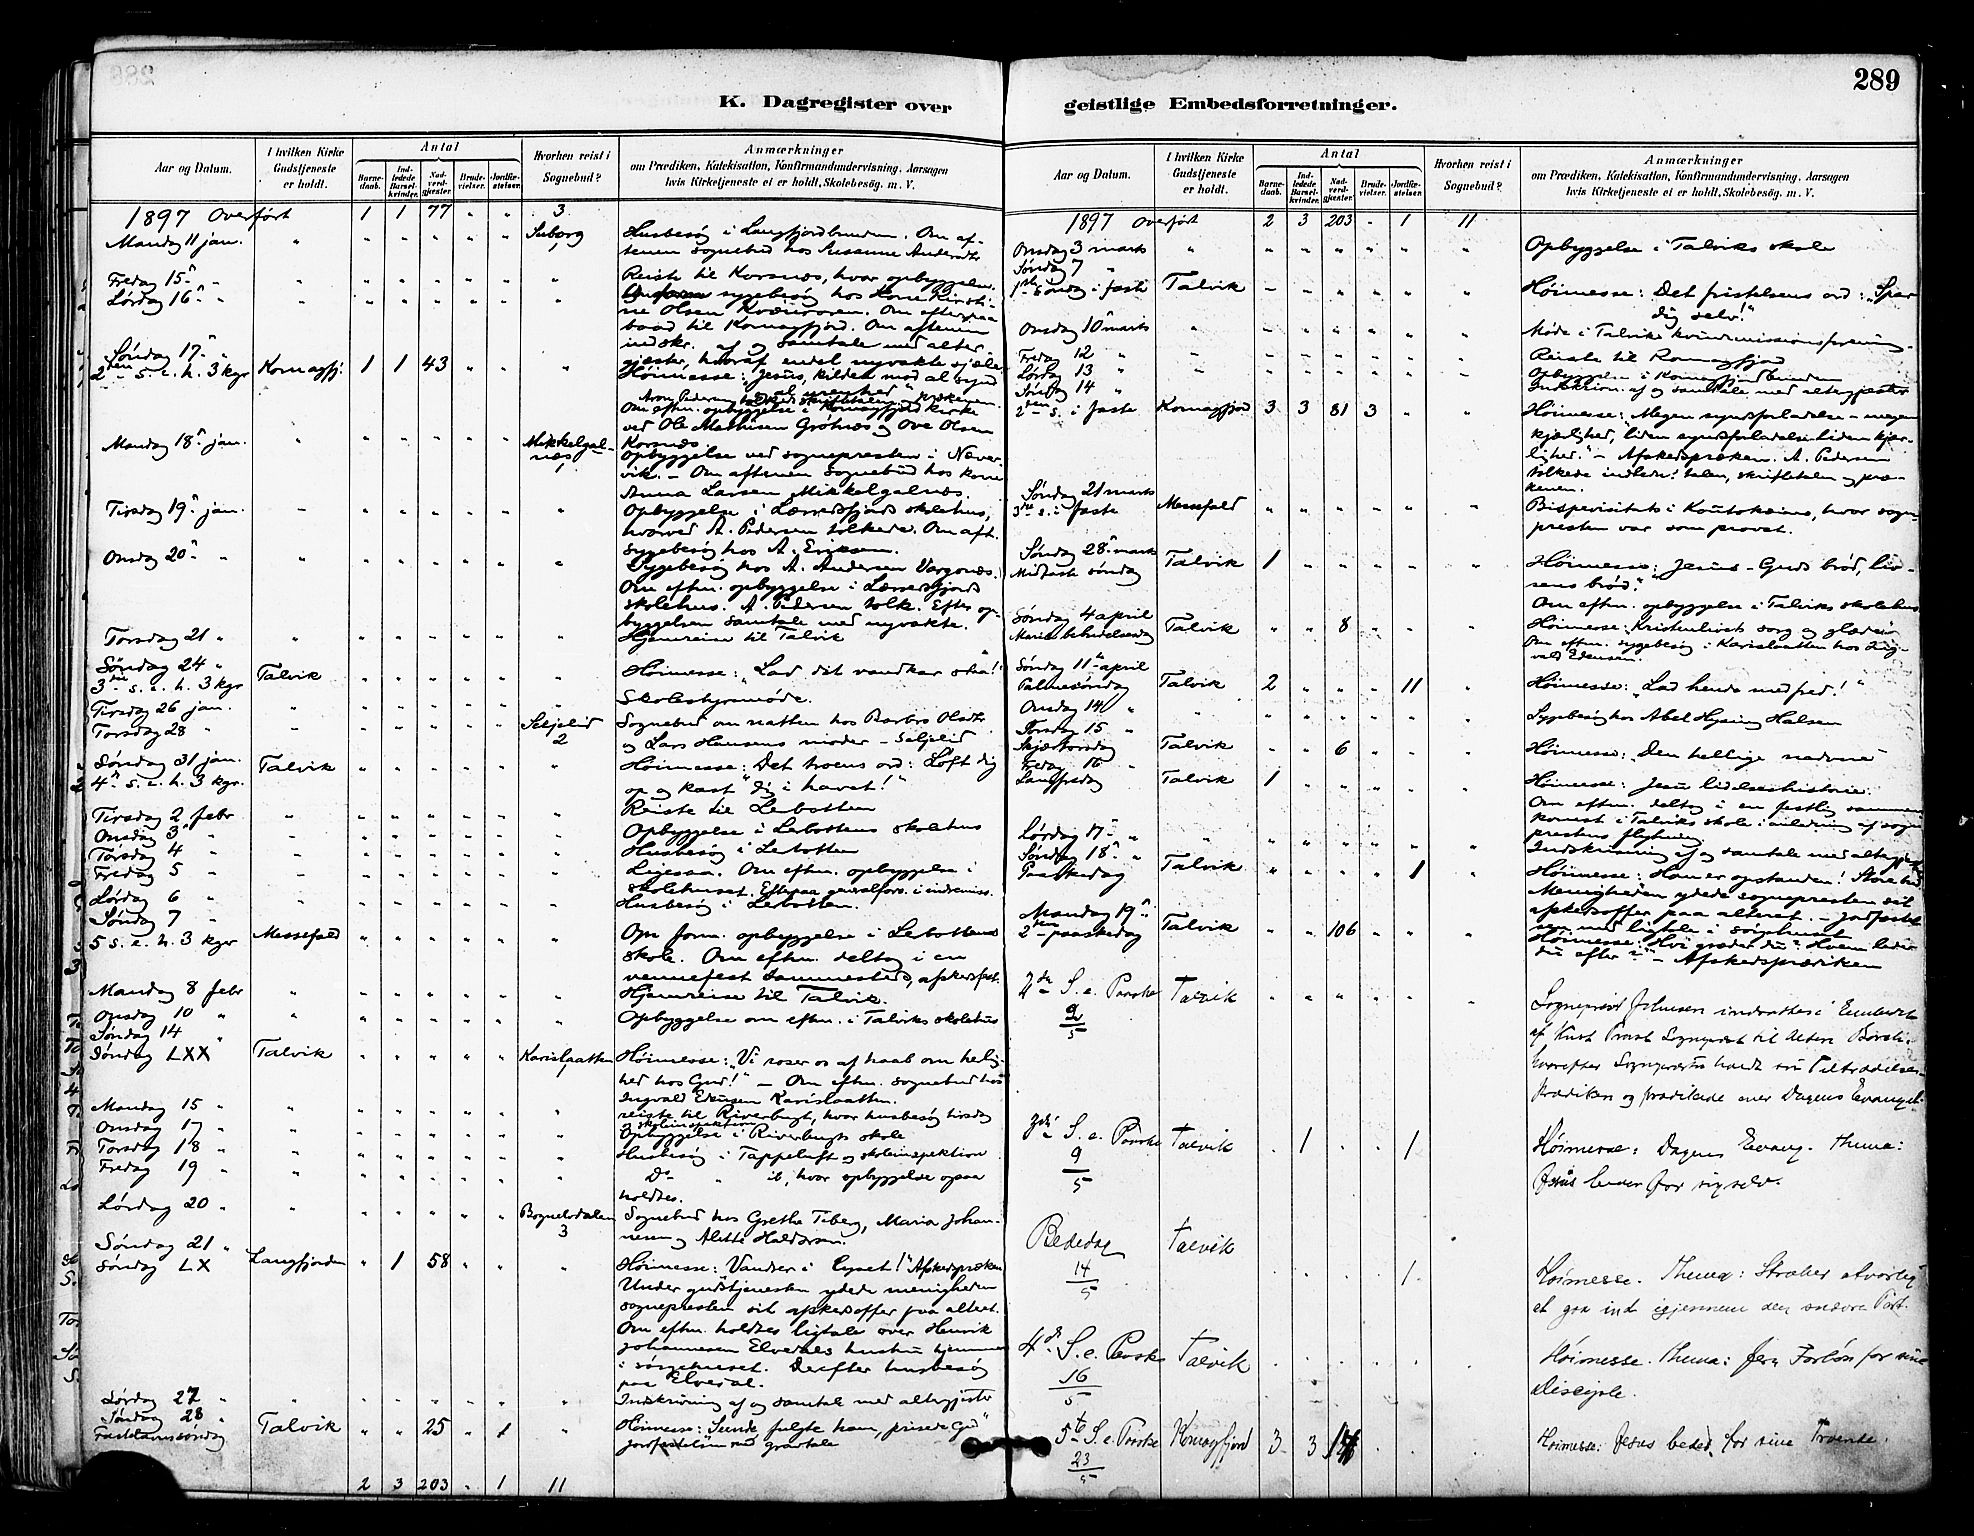 289
K. Dagregister over
geistlige Embedsforretninger.
Aar og Datum.
I hvilken Kirke Gudstjeneste er holdt.
Antal
Barnedaab.
Indledede Barselkvinder.
Nadverdgjester.
Brudevielser.
Jordfæstelser.
Hvorhen reist i Sognebud?
Anmærkninger
om Prædiken, Katekisation, Konfirmandundervisning, Aarsagen
hvis Kirketjeneste ei er holdt, Skolebesøg. m. V.
1897 Overført 1 1 77 " " 3
Mandag 11 jan. " Husbesøg i Langfjordbunden. Om af-
tenen sognebud hos Susanne Andersdtr
Fredag 15 " Reiste til Korsnæs, hvor opbyggelse.
Lørdag 16 " sygebesøg hos Kone Kirsti-
ne Olsen
baad til Komagfjord. Om aftenen
indskr. af og samtale med alter
gjæster, hvoraf endel nyvakte sjæle
Søndag 17 "
2den s. e. h. 3 kgr Komagfj. 1 1 43 " " " Høimesse: "Jesus, kilden mod al synd
Om eftm. opbyggelse i Komagfjord kirke
ved Ole Mathisen Grotnæs og Ove Olsen
Korsnæs.
Mandag 18 jan. " Mikkelgal-
næs 1 Opbyggelse ved sognepresten i Næver-
vik. - Om aftenen sognebud hos kone
Anna Larsen Mikkelgalnæs.
Tirsdag 19 jan. Opbyggelse i Lærredsfjords skolehus,
hvorved A. Pedersen tolkede. Om aft.
sygebesøg hos A. Eriksen.
Onsdag 20 " Sygebesøg hos A. Andersen Vargenæs.
Om eftm. opbyggelse i Lærredsfjords
skolehus. A. Pedersen tolk. Efter op-
byggelsen samtale med nyvakte.
Torsdag 21 " Hjemreise til Talvik
Søndag 24 "
3die s. e. h. 3 kgr Talvik Høimesse: "Lad dit vandkar staa!"
Tirsdag 26 jan. Skolestyremøde.
Torsdag 28 " Seljelid
2 Sognebud om natten hos Barbro Olsdtr
og Lars Hansens moder - Seljelid
Søndag 31 jan.
4 s. e. h. 3 kgr. Talvik Høimesse: Det troens ord: Løft dig
op og kast dig i havet!"
Tirsdag 2 febr Reiste til Lerbotten
Onsdag 3 " Opbyggelse i Lerbottens skolehus
Torsdag 4 " Husbesøg i Lerbotten
Fredag 5 " Ligesaa. Om eftm. opbyggelse i
skolehuset. Efterpaa generalfors. i indremiss.
Lørdag 6 " Husbesøg i Lerbotten.
Søndag 7 "
5 s. e. h. 3 kgr Messefald Om form. opbyggelse i Lerbottens
skole. Om eftm. deltog i en
vennefest sammesteds, afskedsfest.
Mandag 8 febr Hjemreise til Talvik.
Onsdag 10 " Opbyggelse om eftm. i Talviks skolehus
Søndag 14 "
Søndag LXX Talvik Karislaatten
1 Høimesse: "Vi roser os af haab om herlig-
hed hos Gud!" - Om eftm. sognebud hos
Ingvald Edensen Karislaatten.
Mandag 15 " reiste til Riverbugt, hvor husbesøg tirsdag
og skoleinspektion
Onsdag 17 " Opbyggelse i Riverbugts skole
Torsdag 18 " Husbesøg i Tappeluft og skoleinspektion
Fredag 19 " Do " it, hvor opbyggelse ogsaa
holdtes.
Lørdag 20 " Bognelvdalen
3 Sognebud hos Grethe Teberg, Maria Johan-
nesen og Alette Haldorsen.
Søndag 21 "
Søndag LX Langfjorden " 1 58 " " " Høimesse: Vandrer i lyset!" Afskedspræken
Under gudstjenesten ydede menigheden
sognepresten sit afskedsoffer paa alteret.
Om eftm. holdtes ligtale over Henrik
Johannesen Elvedals hustru hjemme
i sørgehuset. Derefter husbesøg
paa Elvedal.
Lørdag 27 " Indskrivning af og samtale med altergjester
Søndag 28 "
Fastelavnssøndag Talvik " " 25 " 1 " Høimesse: Seende, fulgte ham, prisede Gud"
Jordfæstelse med gravtale
2 3 203 " 1 11
Aar og Datum.
I hvilken Kirke Gudstjeneste er holdt.
Antal
Barnedaab.
Indledede Barselkvinder.
Nadverdgjester.
Brudevielser.
Jordfæstelser.
Hvorhen reist i Sognebud?
Anmærkninger
om Prædiken, Katekisation, Konfirmandundervisning, Aarsagen
hvis Kirketjeneste ei er holdt, Skolebesøg. m. V.
1897 Overført 2 3 203 - 1 11
Onsdag 3 marts Opbyggelse i Talviks skole
Søndag 7 "
1ste søndag i faste Talvik Høimesse: Det fristelsens ord: "Spar
dig selv!"
Onsdag 10 marts Møde i Talviks kvindemissionsforening.
Fredag 12 " Reiste til Komagfjord
Lørdag 13 " Opbyggelse i Komagfjordbunden
Indskrivn. af og samtale med altergjester
Søndag 14 "
2den s. i faste Komagfjord 3 3 81 3 " " Høimesse: Megen syndsforladelse - megen
kjærlighed, liden syndsforladelse liden kjær-
lighed." - Afskedspræken. A. Pedersen
tolkede indledn. talen, skriftetalen og præ-
kenen.
Søndag 21 marts
3die s. i faste Messefald Bispevisitats i Koutokeino, hvor sogne-
presten var som provst.
Søndag 28 marts
Midfaste søndag Talvik 1 Høimesse: Jesus - Guds brød, liv-
sens brød."
Om eftm. opbyggelse i Talviks skolehus
Søndag 4 april
Maria bebudelsesdag Talvik " " 8 Høimesse: Kristenlivets sorg og glæde
Om eftm. sygebesøg i Karislaatten hos Ing-
vald Edensen.
Søndag 11 april
Palmesøndag Talvik 2 " " " 11 Høimesse: "Lad hende med fred!"
Onsdag 14 " Sygebesøg hos Abel Hysing Halsen
Torsdag 15 "
Skjærtorsdag Talvik " " 6 Høimesse: Den hellige nadvere
Fredag 16 "
Langfredag Talvik 1 Høimesse: Jesu lidelseshistorie.
Om eftm. deltog i en festlig sammen
komst i Talviks skole i anledning af sogne
prestens flytning
Lørdag 17 " Indskrivning af og samtale med altergjester
Søndag 18 "
Paaskedag Talvik " " " " 1 Høimesse: Han er opstanden!
Menigheden ydede sognepresten sit
afskedsoffer paa alteret. - Jordfæstel-
sen med ligtale i sørgehuset
Mandag 19
2den paaskedag Talvik " " 106 Høimesse: Hvi græder du? Hvem leder
du efter? - Afskedsprædiken
2den S. e. Paaske
2/5 Talvik Sogneprest Johnsen indsættes i Embedet
af Knst Provst Sogneprest til Alten
hvorefter Sognepresten holdt sin Tiltrædelses-
Prædiken og prædikede over Dagens Evangel.
3die S. e. Paaske
9/5 Talvik . 1 . . 1 Høimesse: Dagens Evang. Thema:
Jesus beder for sig selv.
Bededag
14/5 Talvik . . . . 1 Høimesse. Thema: Stræber alvorlig
at gaa ind igjennem den snævre Port.
4de S. e. Paaske
16/5 Talvik Høimesse. Thema: Jesu Forbøn for sine
Disciple.
5te S. e. Paaske
23/5 Komagfjord 3 3 Høimesse: Jesus beder for sine Troende.